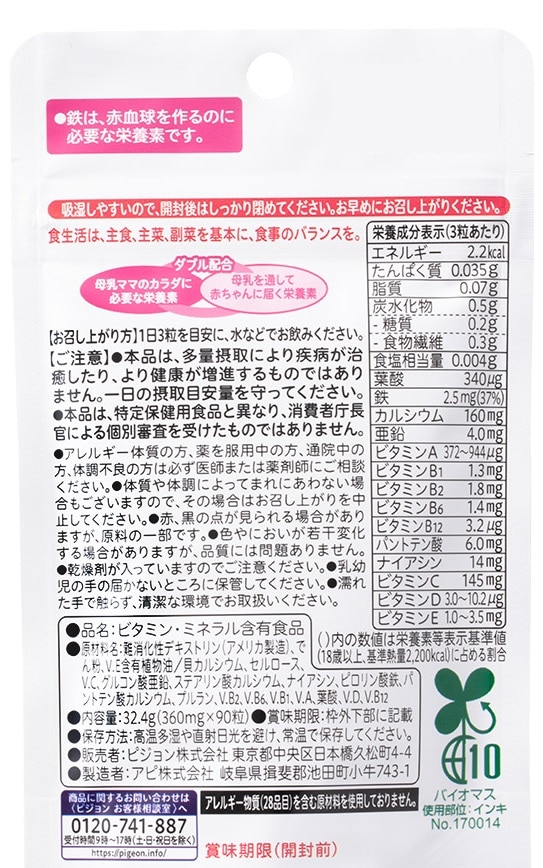 ●鉄は、赤血球を作るのに
必要な栄養素です。
吸湿しやすいので、開封後はしっかり閉めてください。お早めにお召し上がりください。
食生活は、主食、主菜、副菜を基本に、食事のバランスを。
ダブル配合
母乳ママのカラダに
必要な栄養素
母乳を通して
赤ちゃんに届く栄養素
【お召し上がり方】1日3粒を目安に、水などでお飲みください。
【ご注意】●本品は、多量摂取により疾病が治
癒したり、より健康が増進するものではありま
せん。一日の摂取目安量を守ってください。
●本品は、特定保健用食品と異なり、消費者庁長
官による個別審査を受けたものではありません。
●アレルギー体質の方、薬を服用中の方、通院中の
方、体調不良の方は必ず医師または薬剤師にご相談
ください。●体質や体調によってまれにあわない場
合もございますので、その場合はお召し上がりを中
止してください。●赤、黒の点が見られる場合があり
ますが、原料の一部です。●色やにおいが若干変化
する場合がありますが、品質には問題ありません。
●乾燥剤が入っていますのでご注意ください。●乳幼
児の手の届かないところに保管してください。●濡れ
た手で触らず、清潔な環境でお取扱いください。
栄養成分表示(3粒あたり)
エネルギー 2.2kcal
たんぱく質 0.035g
脂質 0.07g
炭水化物 0.5g
- 糖質 0.2g
- 食物繊維 0.3g
食塩相当量 0.004g
葉酸 340μg
鉄 2.5mg(37%)
カルシウム 160mg
亜鉛 4.0mg
ビタミンA 372〜944μg
ビタミンB1 1.3mg
ビタミンB2 1.8mg
ビタミンB6 1.4mg
ビタミンB12 3.2μg
パントテン酸 6.0mg
ナイアシン 14mg
ビタミンC 145mg
ビタミンD 3.0〜10.2μg
ビタミンE 1.0〜3.5mg
( )内の数値は栄養素等表示基準値
(18歳以上、基準熱量2,200kcal)に占める割合
●品名:ビタミン・ミネラル含有食品
●原材料名:難消化性デキストリン(アメリカ製造)、で
ん粉、V.E含有植物油/貝カルシウム、セルロース、
V.C、グルコン酸亜鉛、ステアリン酸カルシウム、ナイアシン、ピロリン酸鉄、パ
ントテン酸カルシウム、プルラン、V.B2、V.B6、V.B1、V.A、葉酸、V.D、V.B12
●内容量:32.4g(360mg×90粒)●賞味期限:枠外下部に記載
●保存方法:高温多湿や直射日光を避け、常温で保存してください。
●販売者:ピジョン株式会社 東京都中央区日本橋久松町4-4
●製造者:アピ株式会社 岐阜県揖斐郡池田町小牛743-1
商品に関するお問い合わせは
〈ピジョン お客様相談室〉へ
0120-741-887
受付時間9時〜17時(土・日・祝日を除く)
https://pigeon.info/
アレルギー物質(28品目)を含む原材料を使用しておりません。
賞味期限(開封前)
10
バイオマス
使用部位:インキ
No.170014